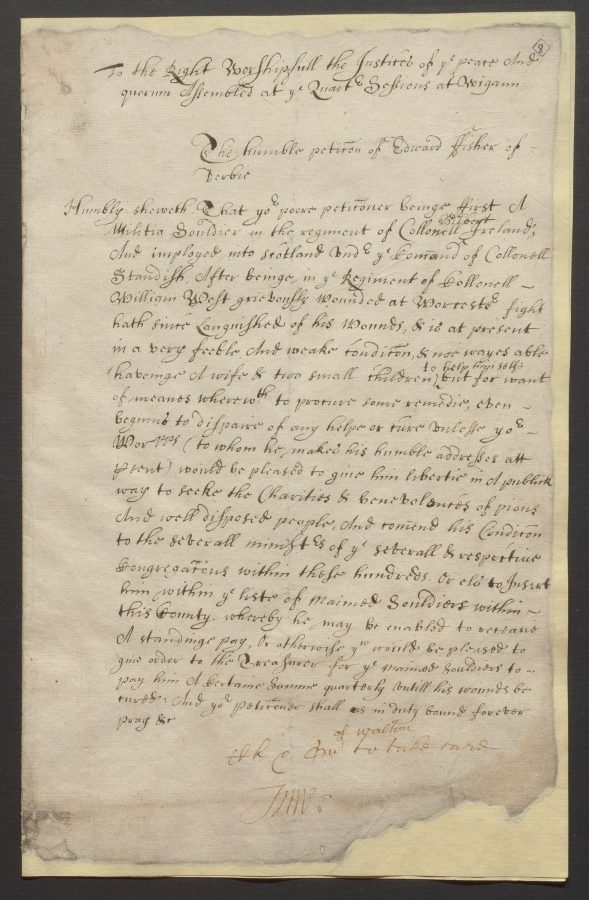 8
To the Right Worshipfull the Justices of yᵉ peace And
quorum Assembled at yᵉ Quartʳ Sessions at Wigann
The humble peticon of Edward ffisher of
Derbie
Humbly sheweth That yoʳ poore peticoner beinge ffirst A
Militia Souldier in the regiment of Collonell Ireland;
And imployed into Scotland undʳ yᵉ Comand of Collonell
Standish After beinge in yᵉ Regiment of Collonell
William West grievously wounded at Worcestʳ fight
hath since Languished of his wounds, & is at present
in a very feeble, And weake condicon, & noe wayes able
to help himselfe
(haveinge A wife & two small children) but for want
of meanes wherewᵗʰ to procure some remedie, even
beginns to dispaire of any helpe or cure unlesse yoʳ
Worᵖᵖˢ (to whom he makes his humble addresses att
psent) would be pleased to give him libertie in A publick
way to seeke the Charities & benevolences of pious
And well disposed people, And comend his Condicon
to the severall ministʳˢ of yᵉ severall & respective
Congregacons within these hundreds. Or els to Insert
him within yᵉ liste of Maimed Souldiers within
this County, whereby he may be enabled to receave
A standinge pay, Or otherwise yᵗ would be pleased to
give order to the Treasurer for yᵉ Maimed Souldiers to
pay him A Certaine Summe quarterly untill his wounds be
cured: And yoʳ Peticoner shall as in duty bound forever
pray &c
of walton
to take care